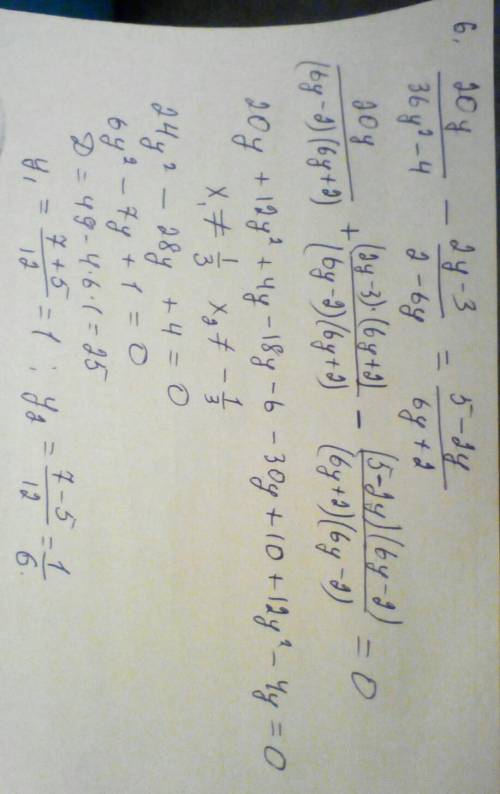 6. 20y/(36y² - 4) - (2y-3)/(2-6y) = (5-2y)/(6y+2)
20y/((6y-2)(6y+2)) + ((2y-3)·(6y+2))/((6y-2)(6y+2)) - ((5-2y)(6y-2))/((6y+2)(6y-2)) = 0
20y + 12y² + 4y - 18y - 6 - 30y + 10 + 12y² - 4y = 0
x₁ ≠ 1/3 x₂ ≠ - 1/3
24y² - 28y + 4 = 0
6y² - 7y + 1 = 0
D = 49 - 4·6·1 = 25
y₁ = (7+5)/12 = 1 ; y₂ = (7-5)/12 = 1/6.